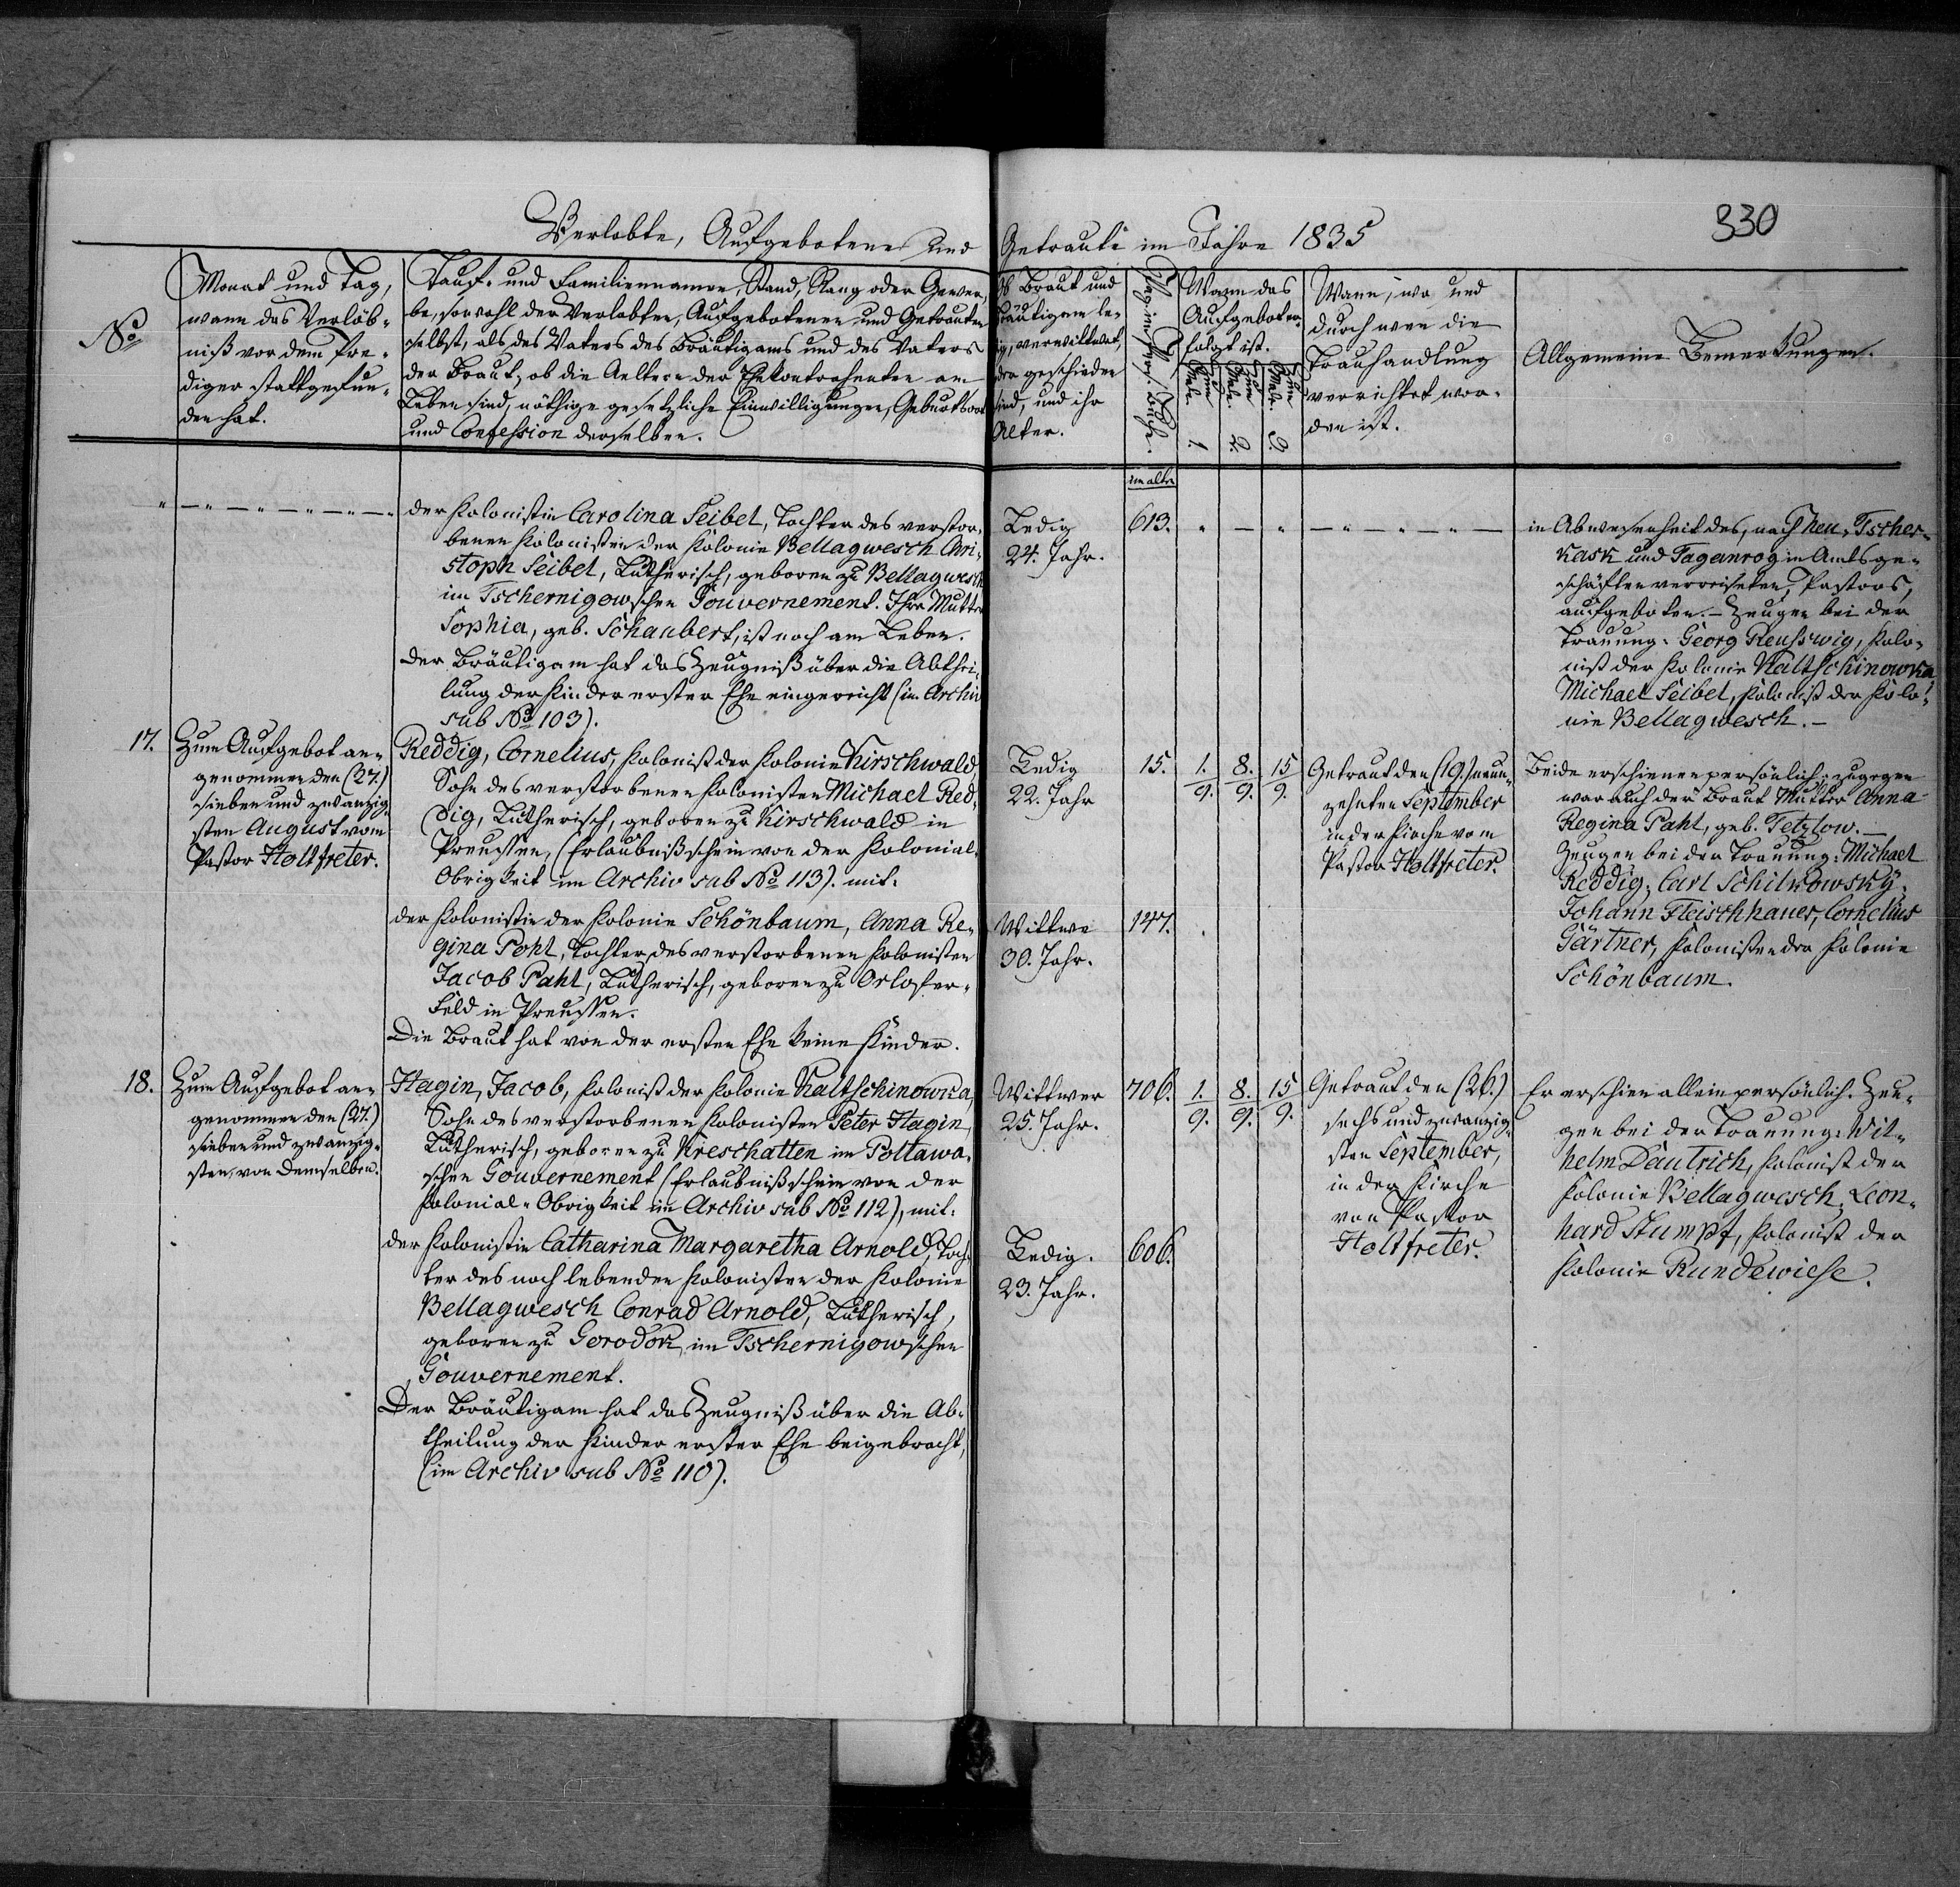 330
Verlobte, Aufgebotene und Getraute im Jahre 1835
No
Monat und Tag,
wann das Verlöb-
niß vor dem Pre-
diger stattgefun-
den hat.
Tauf- und Familiennamen, Stand, Rang oder Gewer-
be, sowohl der Verlobten, Aufgebotenen und Getrauten
selbst, als des Vaters des Bräutigams und des Vaters
der Braut, ob die Aeltern der Ehekontrahenten am
Leben sind, nöthige gesetzliche Einwilligungen, Geburtsort
und Confession derselben.
Ob Braut und
Bräutigam le-
dig, verwittwet,
oder geschieden
sind, und ihr
Alter.
Pag. im Pers. Buche.
Wann das
Aufgebot er-
folgt ist.
Zum 1. Male.
Zum 2. Male.
Zum 3. Male.
Wann, wo und
durch wen die
Trauhandlung
verrichtet wor-
den ist.
Allgemeine Bemerkungen.
im alten
" — " — " — " — " — "
der Kolonistin Carolina Seibel, Tochter des verstor-
benen Kolonisten der Kolonie Bellagwesch Chri-
stoph Seibel, Lutherisch, geboren zu Bellagwesch
im Tschernigowschen Gouvernement. Ihre Mutter
Sophia, geb. Schaubert, ist noch am Leben.
Der Bräutigam hat das Zeugniß über die Abthei-
lung der Kinder erster Ehe eingereicht (im Archiv
sub No 103).
Ledig
24. Jahr.
613.
" — " — " — " — " —
in Abwesenheit des, nach Neu-Tscher-
kask und Taganrog in Amtsge-
schäften verreiseten, Pastors,
aufgeboten. — Zeugen bei der
Trauung: Georg Reusswig, Kolo-
nist der Kolonie Kaltschinowka
Michael Seibel, Kolonist der Kolo-
nie Bellagwesch. —
17.
Zum Aufgebot an-
genommen den (27.)
sieben und zwanzig-
sten August vom
Pastor Holtfreter.
Reddig, Cornelius, Kolonist der Kolonie Kirschwald,
Sohn des verstorbenen Kolonisten Michael Red-
dig, Lutherisch, geboren zu Kirschwald in
Preussen, (Erlaubnißschein von der Kolonial-
Obrigkeit im Archiv sub No 113). mit:
der Kolonistin der Kolonie Schönbaum, Anna Re-
gina Poht, Tochter des verstorbenen Kolonisten
Jacob Paht, Lutherisch, geboren zu Orlofer-
feld in Preussen.
Die Braut hat von der ersten Ehe keine Kinder.
Ledig
22. Jahr
15.
1./9.
8./9.
15/9.
Wittwe
30. Jahr.
147.
Getraut den (19.) neun-
zehnten September
in der Kirche vom
Pastor Holtfreter.
Beide erschienen persönlich; zugegen
war auch der Braut Mutter Anna
Regina Paht, geb. Tetzlow. —
Zeugen bei der Trauung: Michael
Reddig; Carl Schilkowsky;
Johann Fleischhauer, Cornelius
Gärtner, Kolonisten der Kolonie
Schönbaum.
18.
Zum Aufgebot an-
genommen den (27.)
sieben und zwanzig-
sten, von demselben.
Hagin, Jacob, Kolonist der Kolonie Kaltschinowka,
Sohn des verstorbenen Kolonisten Peter Hagin,
Lutherisch, geboren zu Kreschatten im Poltawa-
schen Gouvernement (Erlaubnißschein von der
Kolonial-Obrigkeit im Archiv sub No 112), mit:
der Kolonistin Catharina Margaretha Arnold, Toch-
ter des noch lebenden Kolonisten der Kolonie
Bellagwesch Conrad Arnold, Lutherisch,
geboren zu Gorodok, im Tschernigowschen
Gouvernement.
Der Bräutigam hat das Zeugniß über die Ab-
theilung der Kinder erster Ehe beigebracht,
(im Archiv sub No 110).
Wittwer
25. Jahr.
706.
1./9.
8./9.
15/9.
Ledig.
23. Jahr.
606.
Getraut den (26.)
sechs und zwanzig-
sten September,
in der Kirche
von Pastor
Holtfreter.
Er erschien allein persönlich. Zeu-
gen bei der Trauung: Wil-
helm Dautrich, Kolonist der
Kolonie Bellagwesch, Leon-
hard Stumpf, Kolonist der
Kolonie Rundewiese.